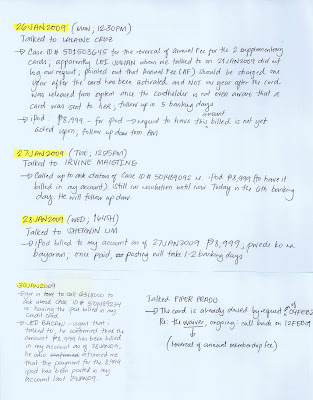 26JAN2009 (MON; 12:30PM)
Talked to LALAINE CRUZ
→ Case ID# 501503645 for the reversal of Annual Fee for the 2 supplementary
cards; apparently LEI whom me talked to on 21JAN2009 did not
log our request; pointed out that Annual Fee (AF) should be charged one
year after the card has been activated and NOT one year after the card
was released from system once the cardholder is not even aware that a
card was sent to her; follow up in 5 banking days
→ iPod ₱8,999 - for ipod → request to have this amount billed is not yet
acted upon; follow up daw tom AM
27JAN2009 (TUE; 12:55PM)
Talked to IRVINE
→ Called up to ask status of Case ID# 501489092 re: iPod ₱8,999 (to have it
billed in my account). Still no until now. Today is the 6th banking
day. He will follow up daw.
28JAN2009 (WED;
Talked to SHERWIN LIM
→ iPod billed to my account as of 27JAN2009 ₱8,999, pwede ko na
bayaran, once paid, posting will take 1-2 banking days
30JAN2009
to call 6318000 to
ask about Case ID# 501489234
re: having the ipod billed in my
credit card.
→ JED BACANI - agent that I
talked to; he confirmed that the
amount ₱8,999 has been billed
in my account as of 28JAN09;
he also informed me
that the payment for the 8,999
ipod has been posted in my
account last
Talked PIPER PRADO
→ The card is already closed by request as of 04FEB2
Re: the waiver, ongoing; call back on 12FEB09
(reversal of annual membership fee)